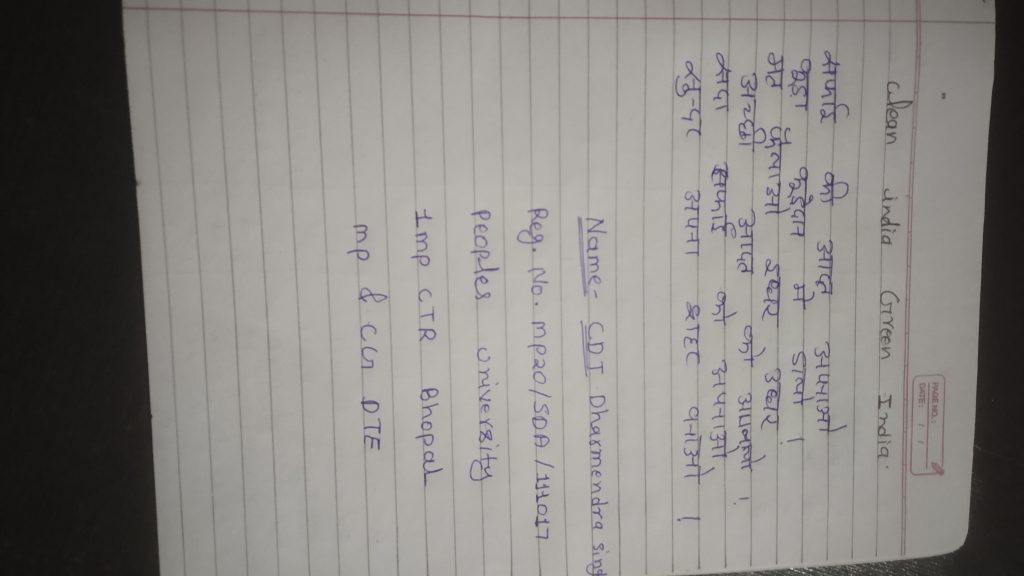 PAGE NO.:
DATE: / /
Clean india Green India.
सफाई की आदत अपनाओ
कूड़ा कूड़ेदान मे डालो ।
मत फैलाओ इधर उधर
अच्छी आदत को आजमाओ ।
सदा सफाई को अपनाओ
सुन्दर अपना शहर बनाओ ।
Name- CDT Dharmendra sing
Reg. No. MP20/SDA/111017
Peoples university
1mp CTR Bhopal
mp & CG DTE